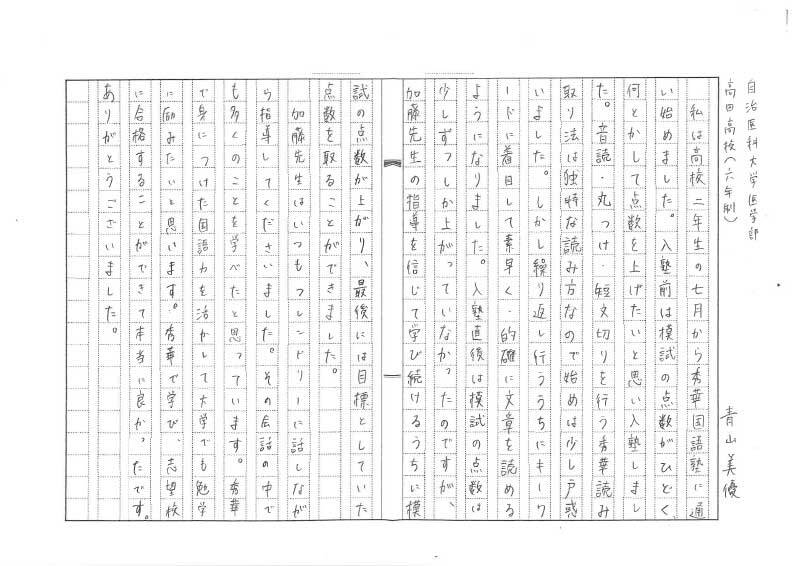 自治医科大学医学部
高田高校（六年制）
青山美優
私は高校二年生の七月から秀華国語塾に通
い始めました。入塾前は模試の点数がひどく、
何とかして点数を上げたいと思い入塾しまし
た。音読・丸つけ・短文切りを行う秀華読み
取り法は独特な読み方なので始めは少し戸惑
いました。しかし繰り返し行ううちにキーワ
ードに着目して素早く・的確に文章を読める
ようになりました。入塾直後は模試の点数は
少しずつしか上がっていなかったのですが、
加藤先生の指導を信じて学び続けるうちに模
試の点数が上がり、最後には目標としていた
点数を取ることができました。
加藤先生はいつもフレンドリーに話しなが
ら指導してくださいました。その会話の中で
も多くのことを学べたと思っています。秀華
で身につけた国語力を活かして大学でも勉学
に励みたいと思います。秀華で学び、志望校
に合格することができて本当に良かったです。
ありがとうございました。